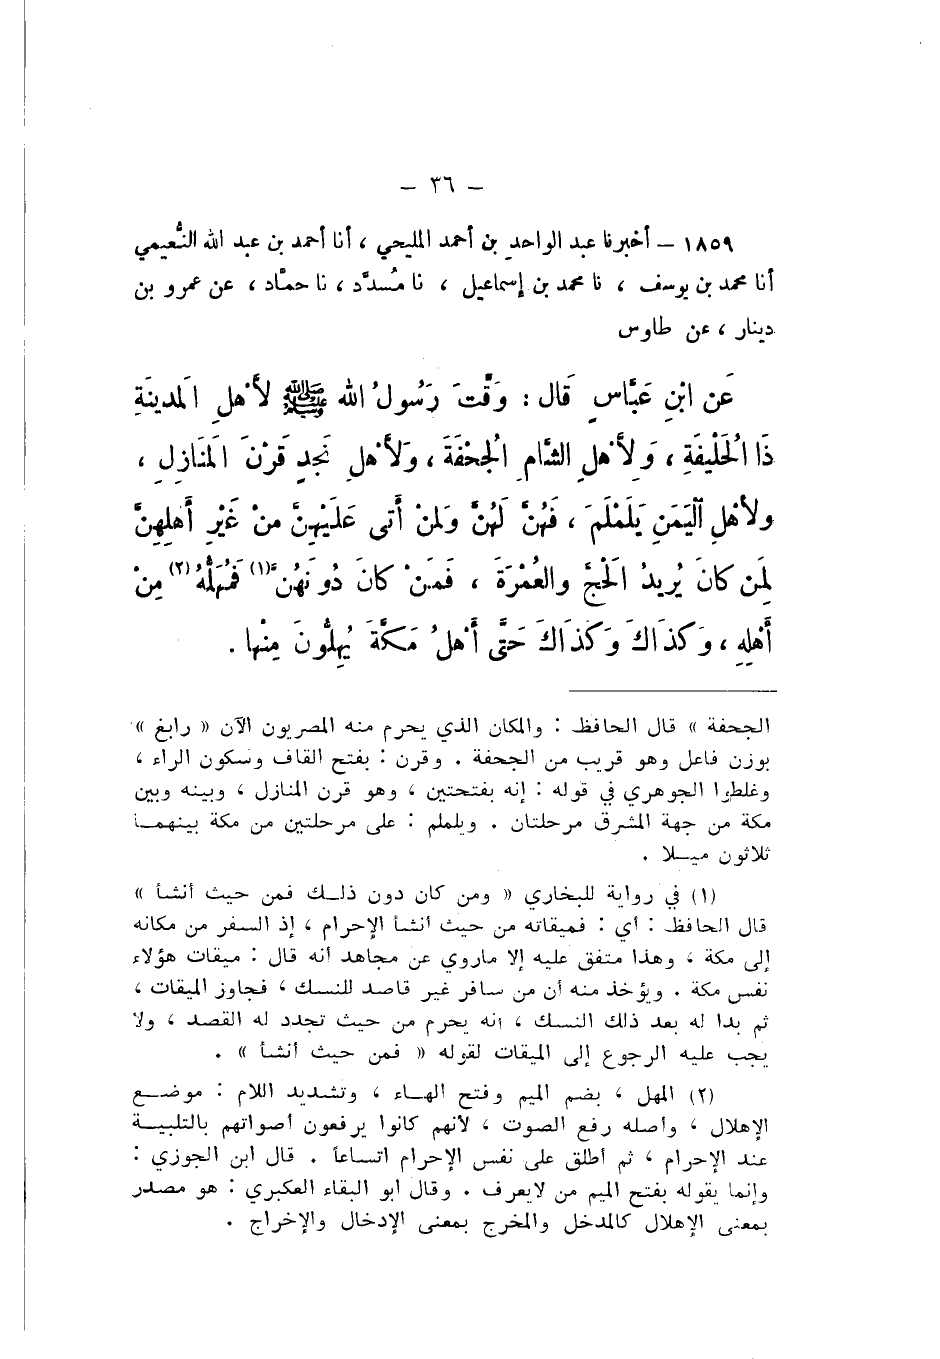 – ٣٦ –
١٨٥٩ – أخبرنا عبد الواحدِ بن أحمد المليحي ، أنا أحمد بن عبد الله النُّعيمي
أنا محمد بن يوسف ، نا محمد بن إسماعيل ، نا مُسدَّد ، نا حمَّاد ، عن عمرو بن
دينار ، عن طاوس
عَن ابْنِ عَبَّاسٍ قَال : وَقَّتَ رَسُولُ الله ﷺ لأهْلِ المَدينَةِ
ذَا الحُلَيفَةِ ، وَلأهْلِ الشَّامِ الجُحْفَةَ ، وَلأهْلِ نَجدٍ قَرْنَ المَنَازِلِ ،
ولأهْلِ اليَمَنِ يَلَمْلَمَ ، فَهُنَّ لَهُنَّ وَلمنْ أتى عَلَيْهِنَّ منْ غَيْرِ أهلِهِنَّ
لمَن كانَ يُريدُ الحَجَّ والعُمْرَةَ ، فَمَنْ كانَ دُونَهُنَّ (١) فَمُهَلُّهُ (٢) مِنْ
أَهْلِهِ ، وَكَذاكَ وَكَذاكَ حَتَّى أَهْلُ مَكَّةَ يُهِلُّونَ مِنْها .
الجحفة » قال الحافظ : والمكان الذي يحرم منه المصريون الآن « رابغ »
بوزن فاعل وهو قريب من الجحفة . وقرن : بفتح القاف وسكون الراء ،
وغلطوا الجوهري في قوله : إنه بفتحتين ، وهو قرن المنازل ، وبينه وبين
مكة من جهة المشرق مرحلتان . ويلملم : على مرحلتين من مكة بينهمـا
ثلاثون ميـلا .
(١) في رواية للبخاري « ومن كان دون ذلـك فمن حيث أنشأ »
قال الحافظ : أي : فميقاته من حيث أنشأ الإحرام ، إذ السفر من مكانه
إلى مكة ، وهذا متفق عليه إلا ماروي عن مجاهد أنه قال : ميقات هؤلاء
نفس مكة . ويؤخذ منه أن من سافر غير قاصد للنسك ، فجاوز الميقات ،
ثم بدا له بعد ذلك النسك ، أنه يحرم من حيث تجدد له القصد ، ولا
يجب عليه الرجوع إلى الميقات لقوله « فمن حيث أنشأ » .
(٢) المهل ، بضم الميم وفتح الهـاء ، وتشديد اللام : موضـع
الإهلال ، وأصله رفع الصوت ، لأنهم كانوا يرفعون أصواتهم بالتلبيـة
عند الإحرام ، ثم أطلق على نفس الإحرام اتساعاً . قال ابن الجوزي :
وإنما يقوله بفتح الميم من لايعرف . وقال ابو البقاء العكبري : هو مصدر
بمعنى الإهلال كالمدخل والمخرج بمعنى الإدخال والإخراج .